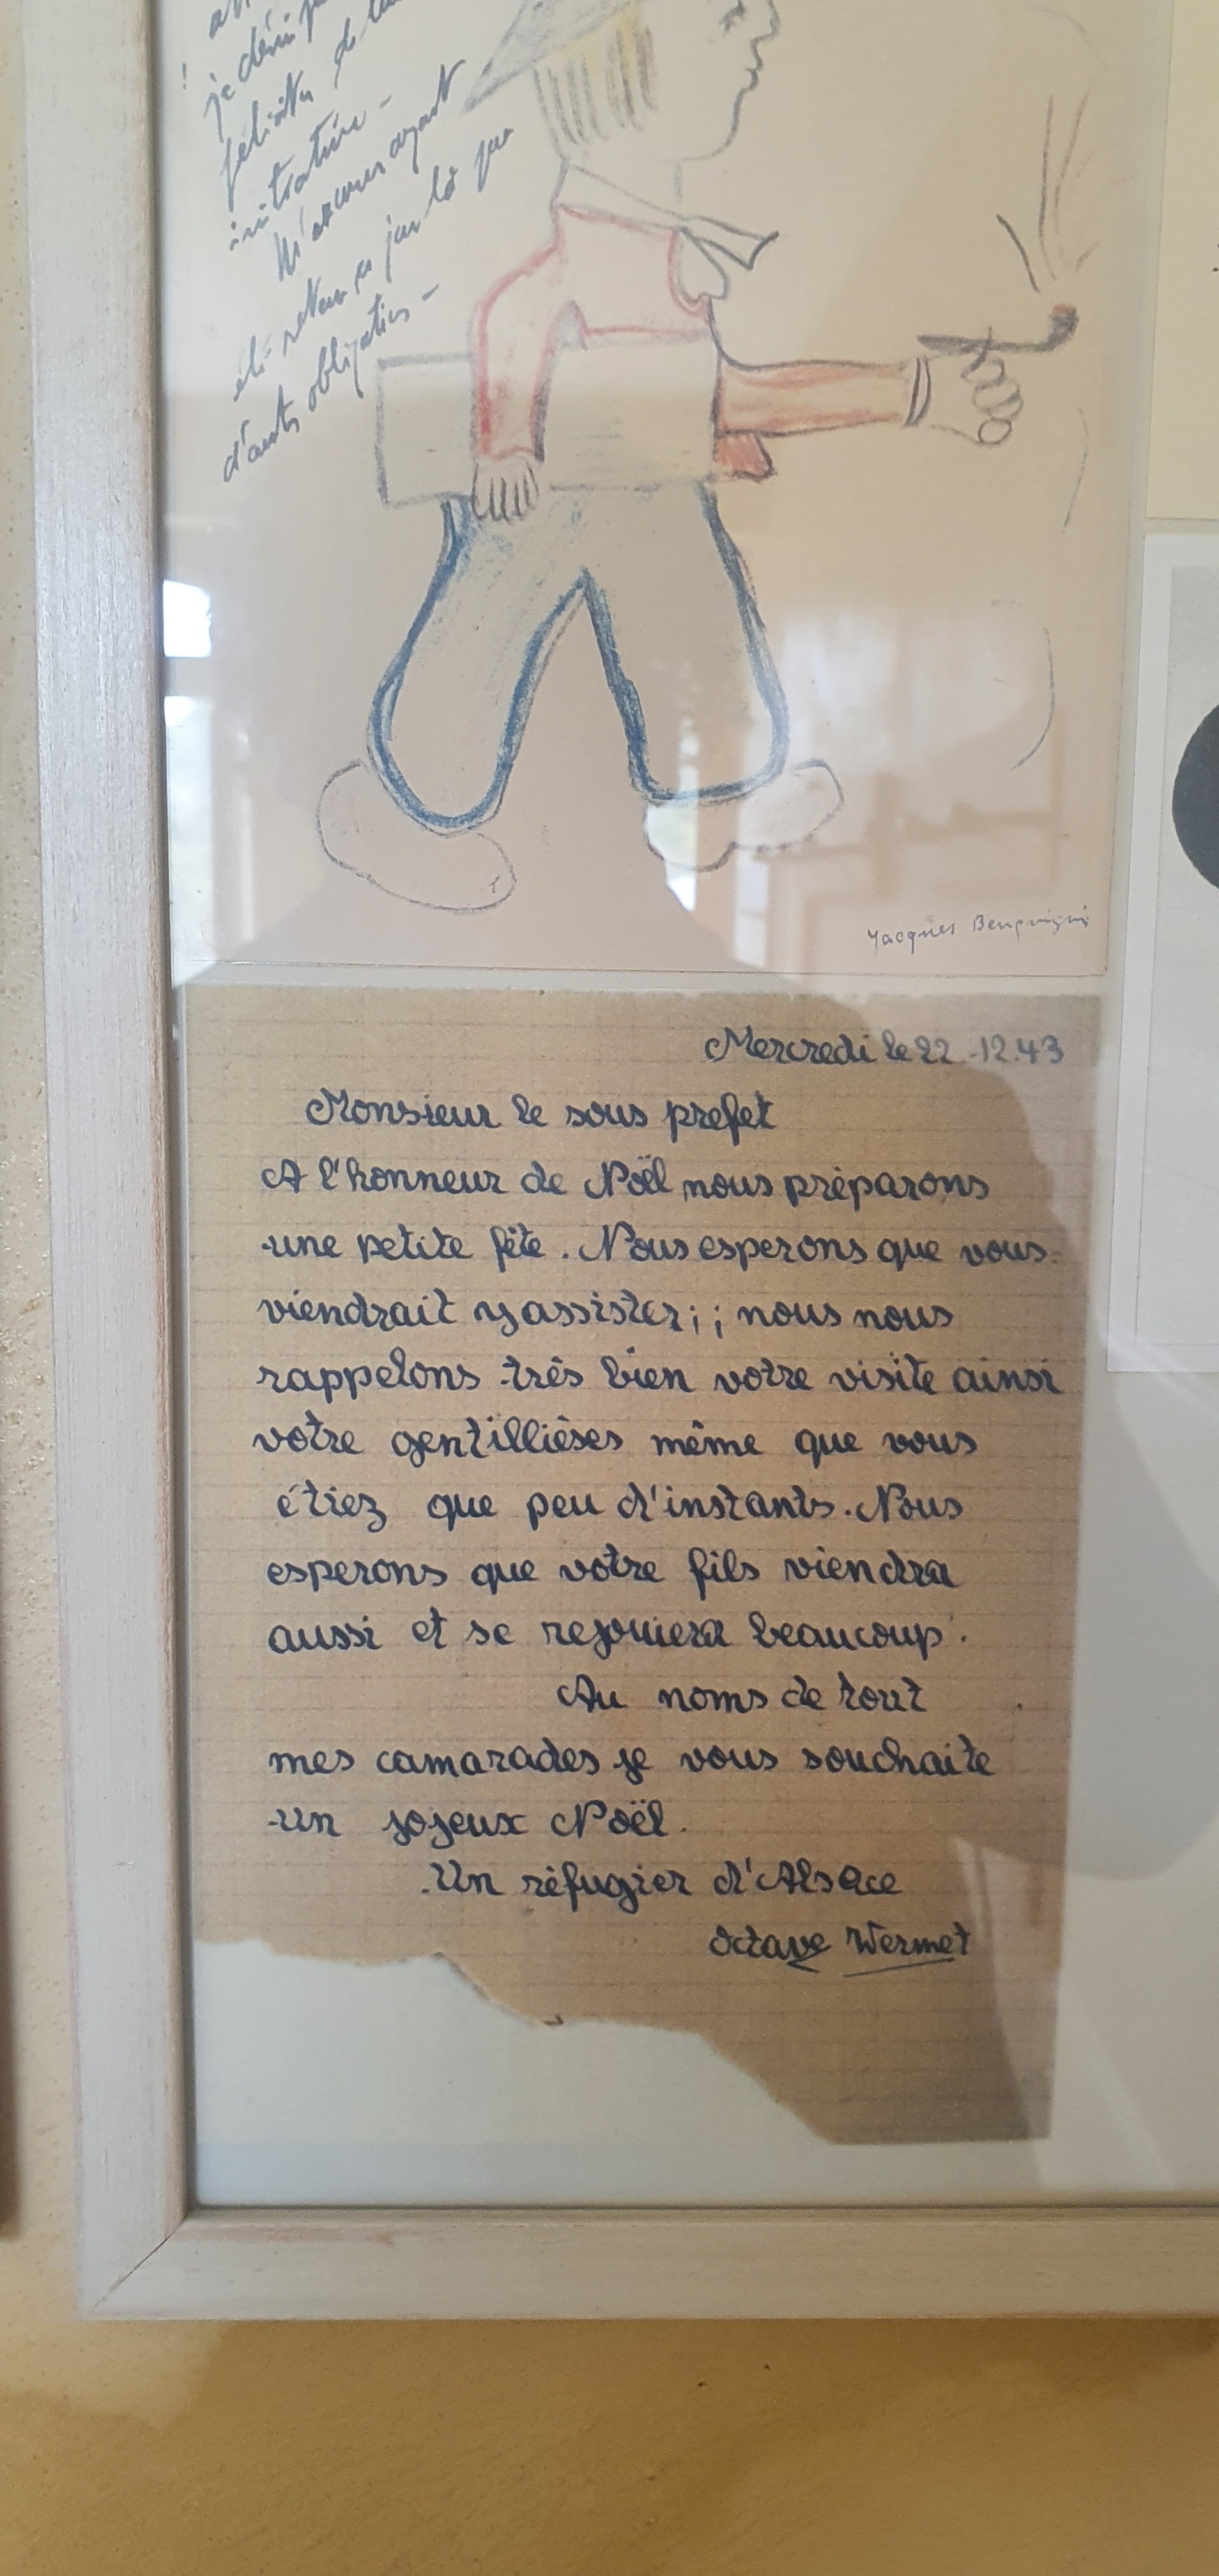 je dési
félicita
M'excuser ayant
été retenu ce jour là par
d'autres obligations -
Jacques Benguigui
Mercredi le 22.12.43
Monsieur le sous prefet
A l'honneur de Noël nous préparons
une petite fête. Nous esperons que vous
viendrait y assister; ; nous nous
rappelons très bien votre visite ainsi
votre gentillièses même que vous
étiez que peu d'instants. Nous
esperons que votre fils viendra
aussi et se rejouiera beaucoup.
Au noms de tout
mes camarades je vous souchaite
un jojeux Noël.
Un réfugier d'Alsace
Octave Wermet